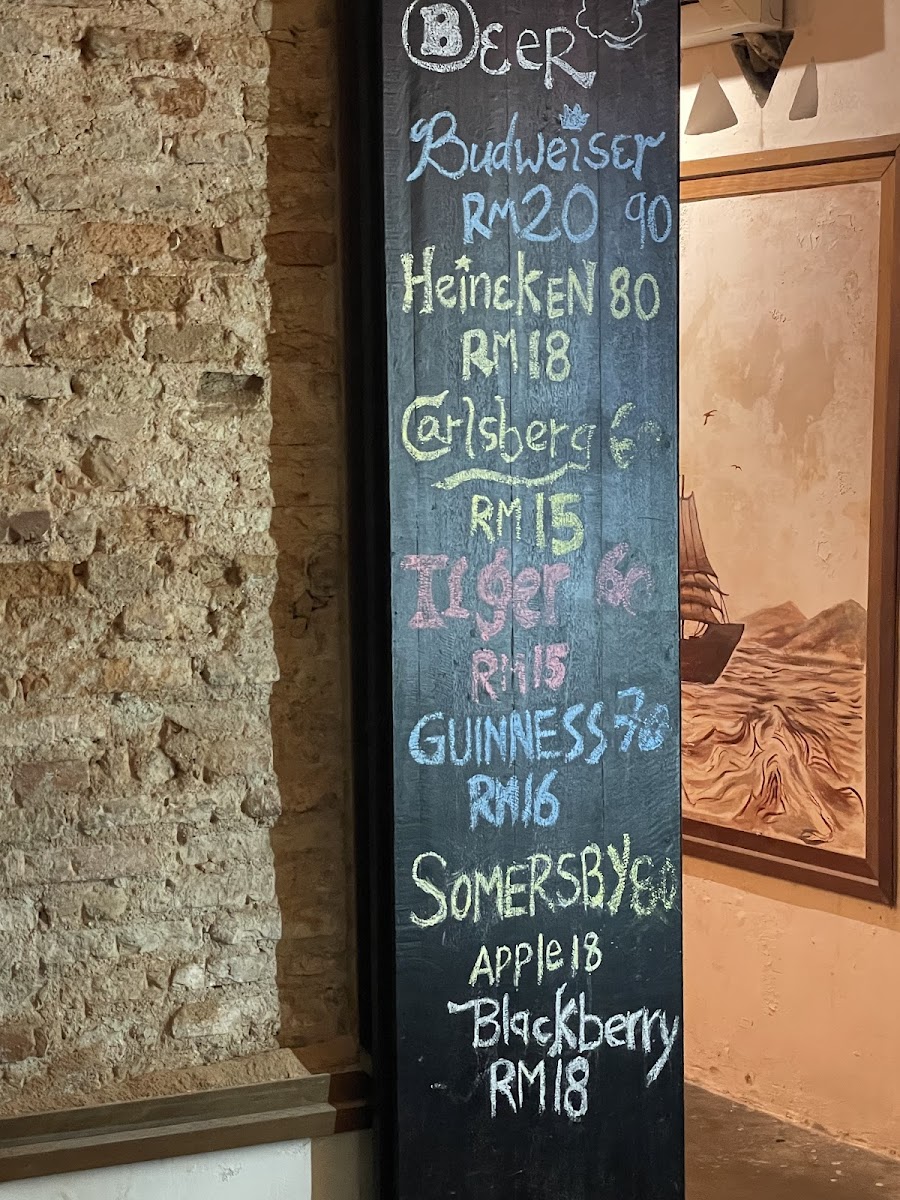 Beer
Budweiser
RM20 90
Heineken 80
RM18
Carlsberg
RM15
Tiger
RM15
GUINNESS 70
RM16
SOMERSBY
APPle 18
Blackberry
RM18